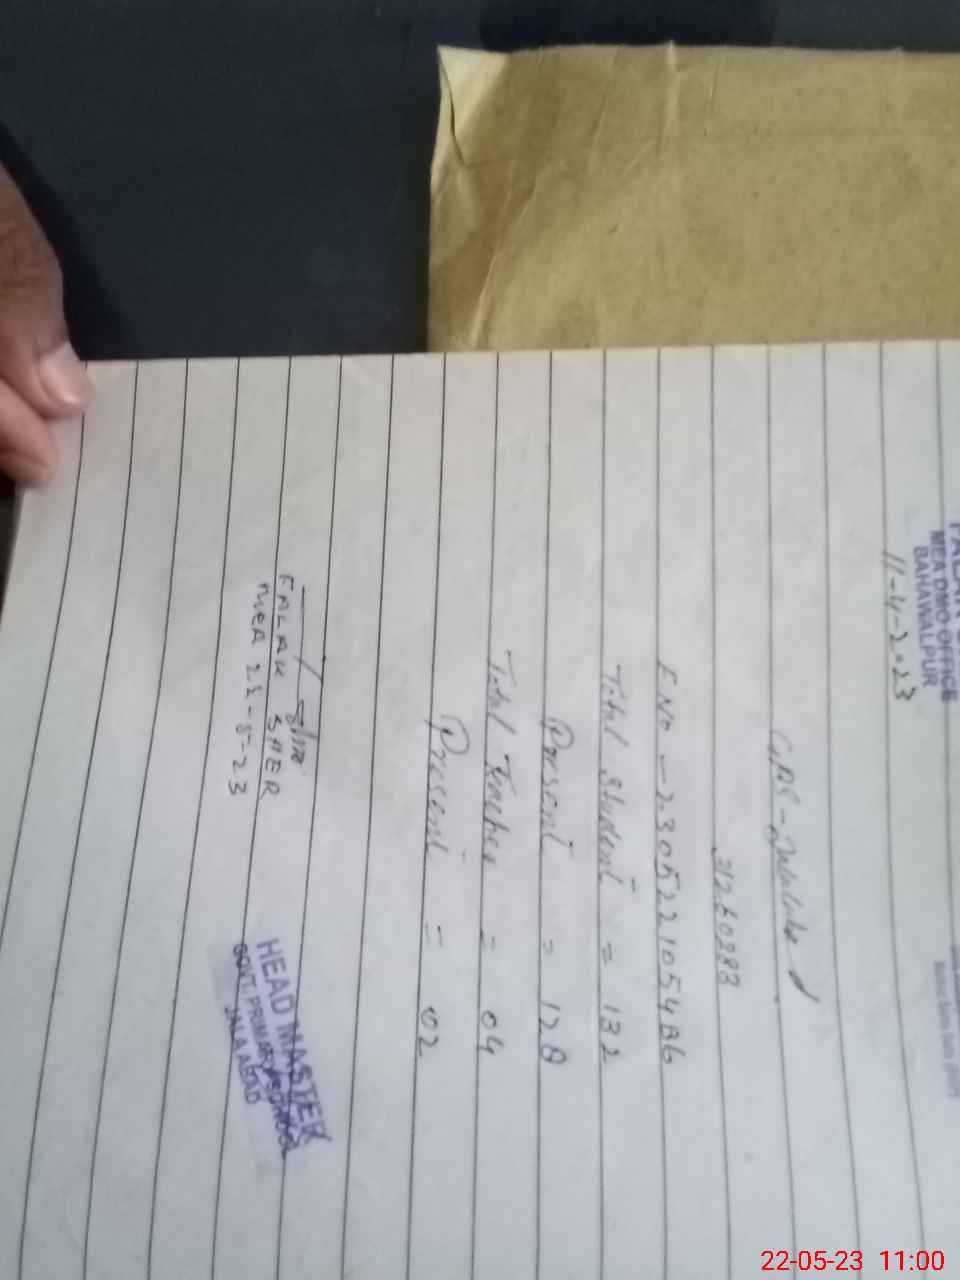 MEA DMO OFFICE
BAHAWALPUR
11-4-2023
GPS-Jalalabad
31260283
F.No - 230522105486
Total student = 132
Present = 128
Total Teacher = 04
Present = 02
FALAK SHER
MEA 22-5-23
HEAD MASTER
GOVT. PRIMARY SCHOOL
JALAABAD
22-05-23 11:00